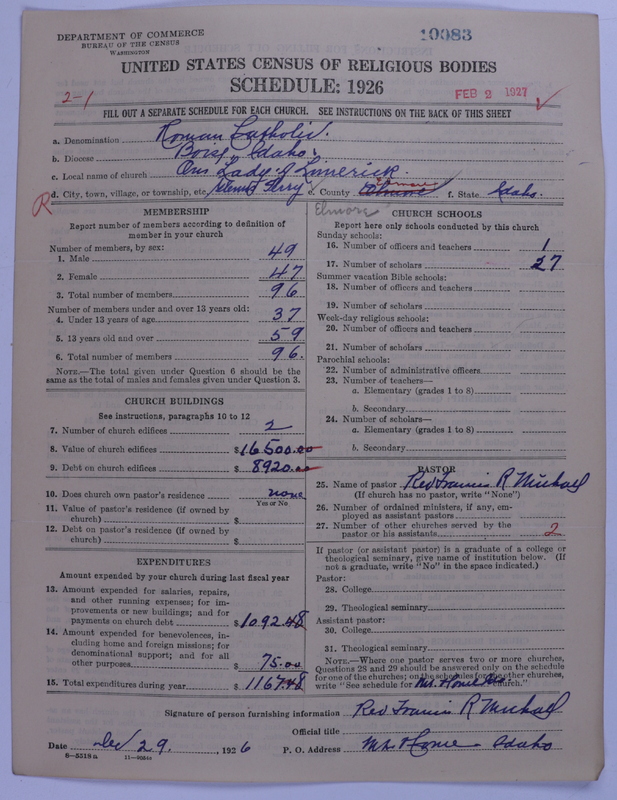 DEPARTMENT OF COMMERCE
BUREAU OF THE CENSUS
WASHINGTON
10083
UNITED STATES CENSUS OF RELIGIOUS BODIES
SCHEDULE: 1926
2-1
FEB 2 1927
FILL OUT A SEPARATE SCHEDULE FOR EACH CHURCH. SEE INSTRUCTIONS ON THE BACK OF THIS SHEET
a. Denomination Roman Catholic.
b. Diocese Boise, Idaho.
c. Local name of church Our Lady of Limerick.
R
d. City, town, village, or township, etc. Glenns Ferry e. County Elmore f. State Idaho.
Elmore
MEMBERSHIP
Report number of members according to definition of
member in your church
Number of members, by sex:
1. Male 49
2. Female 47
3. Total number of members 96
Number of members under and over 13 years old:
4. Under 13 years of age 37
5. 13 years old and over 59
6. Total number of members 96.
NOTE.—The total given under Question 6 should be
same as the total of males and females given under Question 3.
CHURCH BUILDINGS
See instructions, paragraphs 10 to 12
7. Number of church edifices 2
8. Value of church edifices $16500.00
9. Debt on church edifices $8920.00
10. Does church own pastor's residence none
Yes or No
11. Value of pastor's residence (if owned by
church) $
12. Debt on pastor's residence (if owned by
church) $
EXPENDITURES
Amount expended by your church during last fiscal year
13. Amount expended for salaries, repairs,
and other running expenses; for im-
provements or new buildings; and for
payments on church debt $1092.48
14. Amount expended for benevolences, in-
cluding home and foreign missions; for
denominational support; and for all
other purposes $75.00
15. Total expenditures during year $1167.48
CHURCH SCHOOLS
Report here only schools conducted by this church
Sunday schools:
16. Number of officers and teachers 1
17. Number of scholars 27
Summer vacation Bible schools:
18. Number of officers and teachers
19. Number of scholars
Week-day religious schools:
20. Number of officers and teachers
21. Number of scholars
Parochial schools:
22. Number of administrative officers
23. Number of teachers—
a. Elementary (grades 1 to 8)
b. Secondary
24. Number of scholars—
a. Elementary (grades 1 to 8)
b. Secondary
PASTOR
25. Name of pastor Rev Francis R Michael
(If church has no pastor, write "None")
26. Number of ordained ministers, if any, em-
ployed as assistant pastors
27. Number of other churches served by the
pastor or his assistants 2
If pastor (or assistant pastor) is a graduate of a college or
theological seminary, give name of institution below. (If
not a graduate, write "No" in the space indicated.)
Pastor:
28. College
29. Theological seminary
Assistant pastor:
30. College
31. Theological seminary
NOTE.—Where one pastor serves two or more churches,
Questions 28 and 29 should be answered only on the schedule
for one of the churches; on the schedules for the other churches,
write "See schedule for Mt. Home church."
Signature of person furnishing information Rev Francis R Michael
Official title
Date Dec 29, 1926 P. O. Address Mt. Home Idaho